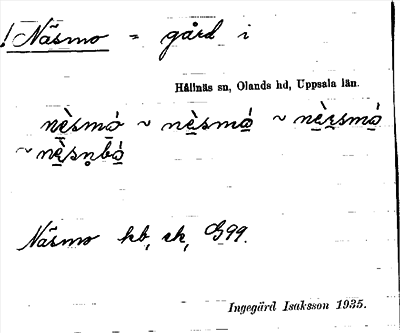 ! Näsmo = gård i
Hållnäs sn, Olands hd, Uppsala län.
nὲ̱smɷ́ ~ nὲ̱smɷ́ ~ nὲ̱ṟsmɷ́
~ nὲ̱sn̥bɷ́
Näsmo kb, ek, G99.
Ingegärd Isaksson 1935.